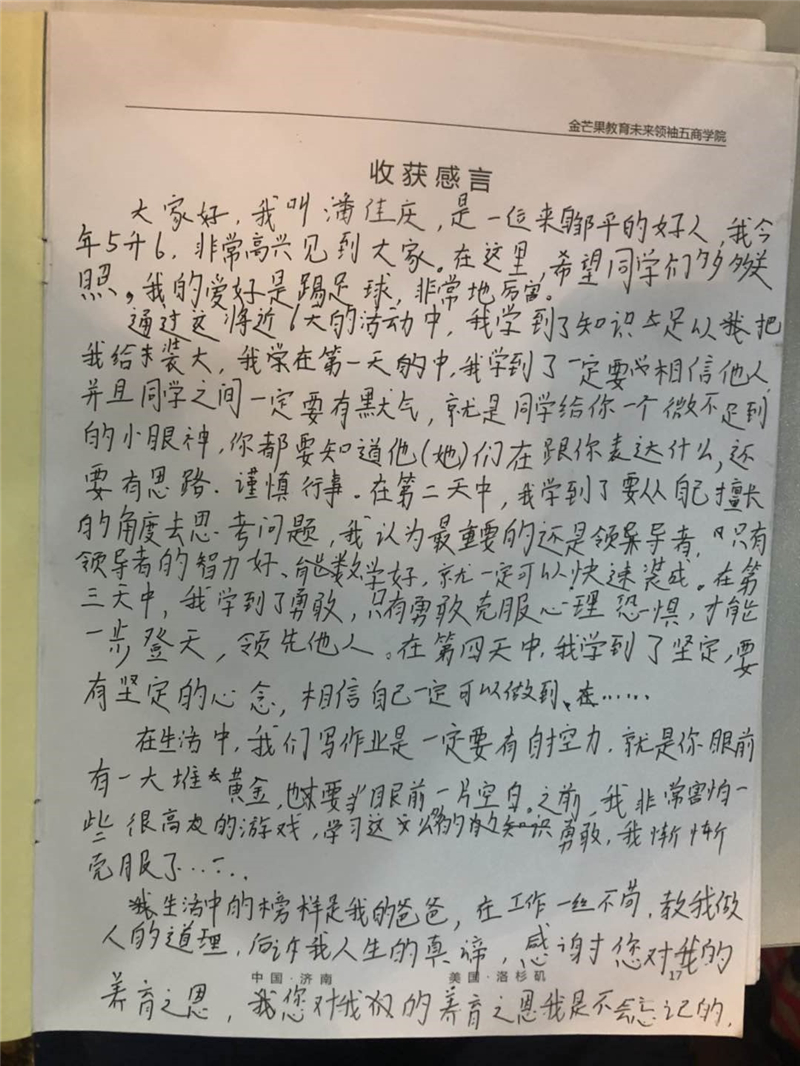 金芒果教育未来领袖五商学院
收获感言
大家好，我叫潘佳庆，是一位来自邹平的好人，我今
年5升6，非常高兴见到大家。在这里，希望同学们多多关
照。我的爱好是踢足球，非常地厉害。
通过这将近6天的活动中，我学到了知识足以我把
我给未装大，我学在第一天的中，我学到了一定要相信他人，
并且同学之间一定要有默气，就是同学给你一个微不足到
的小眼神，你都要知道他(她)们在跟你表达什么，还
要有思路、谨慎行事。在第二天中，我学到了要从自己擅长
的角度去思考问题，我认为最重要的还是领导者，只有
领导者的智力好、能数学好，就一定可以快速装成。在第
三天中，我学到了勇敢，只有勇敢克服心理恐惧，才能
一步登天，领先他人。在第四天中，我学到了坚定，要
有坚定的心念，相信自己一定可以做到、在……
在生活中，我们写作业是一定要有自空力，就是你眼前
有一大堆黄金，也要当眼前一片空白。之前，我非常害怕一
些很高的游戏，学习这勇敢，我惭惭
克服了……
我生活中的榜样是我的爸爸，在工作一丝不苟，教我做
人的道理，告诉我人生的真谛，感谢您对我的
中国·济南 美国·洛杉矶 17
养育之恩，我您对我的养育之恩我是不会忘记的，